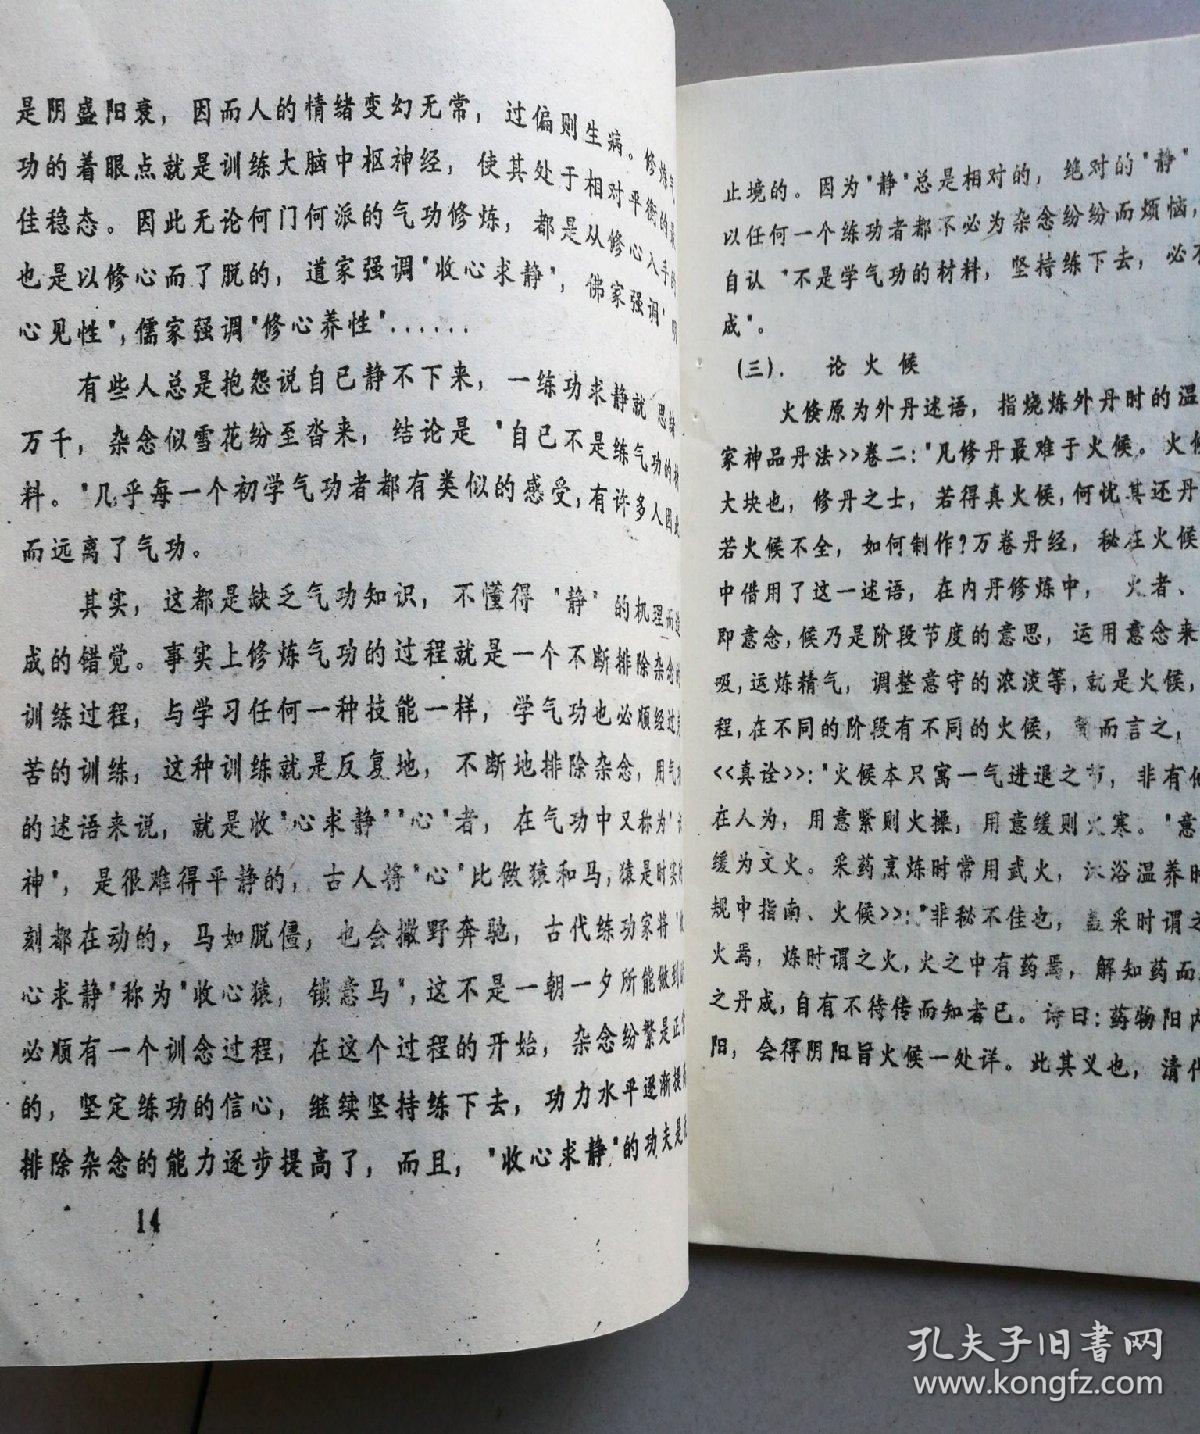 是阴盛阳衰，因而人的情绪变幻无常，过偏则生病。修炼气
功的着眼点就是训练大脑中枢神经，使其处于相对平衡的最
佳稳态。因此无论何门何派的气功修炼，都是从修心入手的
也是以修心而了脱的，道家强调"收心求静"，佛家强调"明
心见性"，儒家强调"修心养性"……
有些人总是抱怨说自已静不下来，一练功求静就 思绪
万千，杂念似雪花纷至沓来，结论是 "自已不是练气功的材
料。"几乎每一个初学气功者都有类似的感受，有许多人因此
而远离了气功。
其实，这都是缺乏气功知识，不懂得 "静" 的机理而造
成的错觉。事实上修炼气功的过程就是一个不断排除杂念的
训练过程，与学习任何一种技能一样，学气功也必顺经过
苦的训练，这种训练就是反复地，不断地排除杂念，用气
的述语来说，就是收"心求静""心"者，在气功中又称为
神"，是很难得平静的，古人将"心"比做猿和马，猿是时
刻都在动的，马如脱僵，也会撒野奔驰，古代练功家将"收
心求静"称为"收心猿，锁意马"，这不是一朝一夕所能做到
必顺有一个训念过程，在这个过程的开始，杂念纷繁是正常
的，坚定练功的信心，继续坚持练下去，功力水平逐渐提高
排除杂念的能力逐步提高了，而且，"收心求静"的功夫是
14
止境的。因为"静"总是相对的，绝对的"静"
以任何一个练功者都不必为杂念纷纷而烦恼，
自认 "不是学气功的材料，坚持练下去，必
成"。
(三)． 论火候
火候原为外丹述语，指烧炼外丹时的温
家神品丹法>>卷二："凡修丹最难于火候。火候
大块也，修丹之士，若得真火候，何忧其还丹
若火候不全，如何制作？万卷丹经，秘在火候
中借用了这一述语，在内丹修炼中，火者、
即意念，候乃是阶段节度的意思，运用意念来
吸，运炼精气，调整意守的浓淡等，就是火候，
程，在不同的阶段有不同的火候，而言之，
<<真诠>>："火候本只寓一气进退之节，非有他
在人为，用意紧则火操，用意缓则火寒。"意
缓为文火。采药烹炼时常用武火，沐浴温养时
规中指南、火候>>："非秘不佳也，盖采时谓之
火焉，炼时谓之火，火之中有药焉，解知药而
之丹成，自有不待传而知者已。诗曰：药物阳内
阳，会得阴阳旨火候一处详。此其义也，清代
孔夫子旧书网
www.kongfz.com